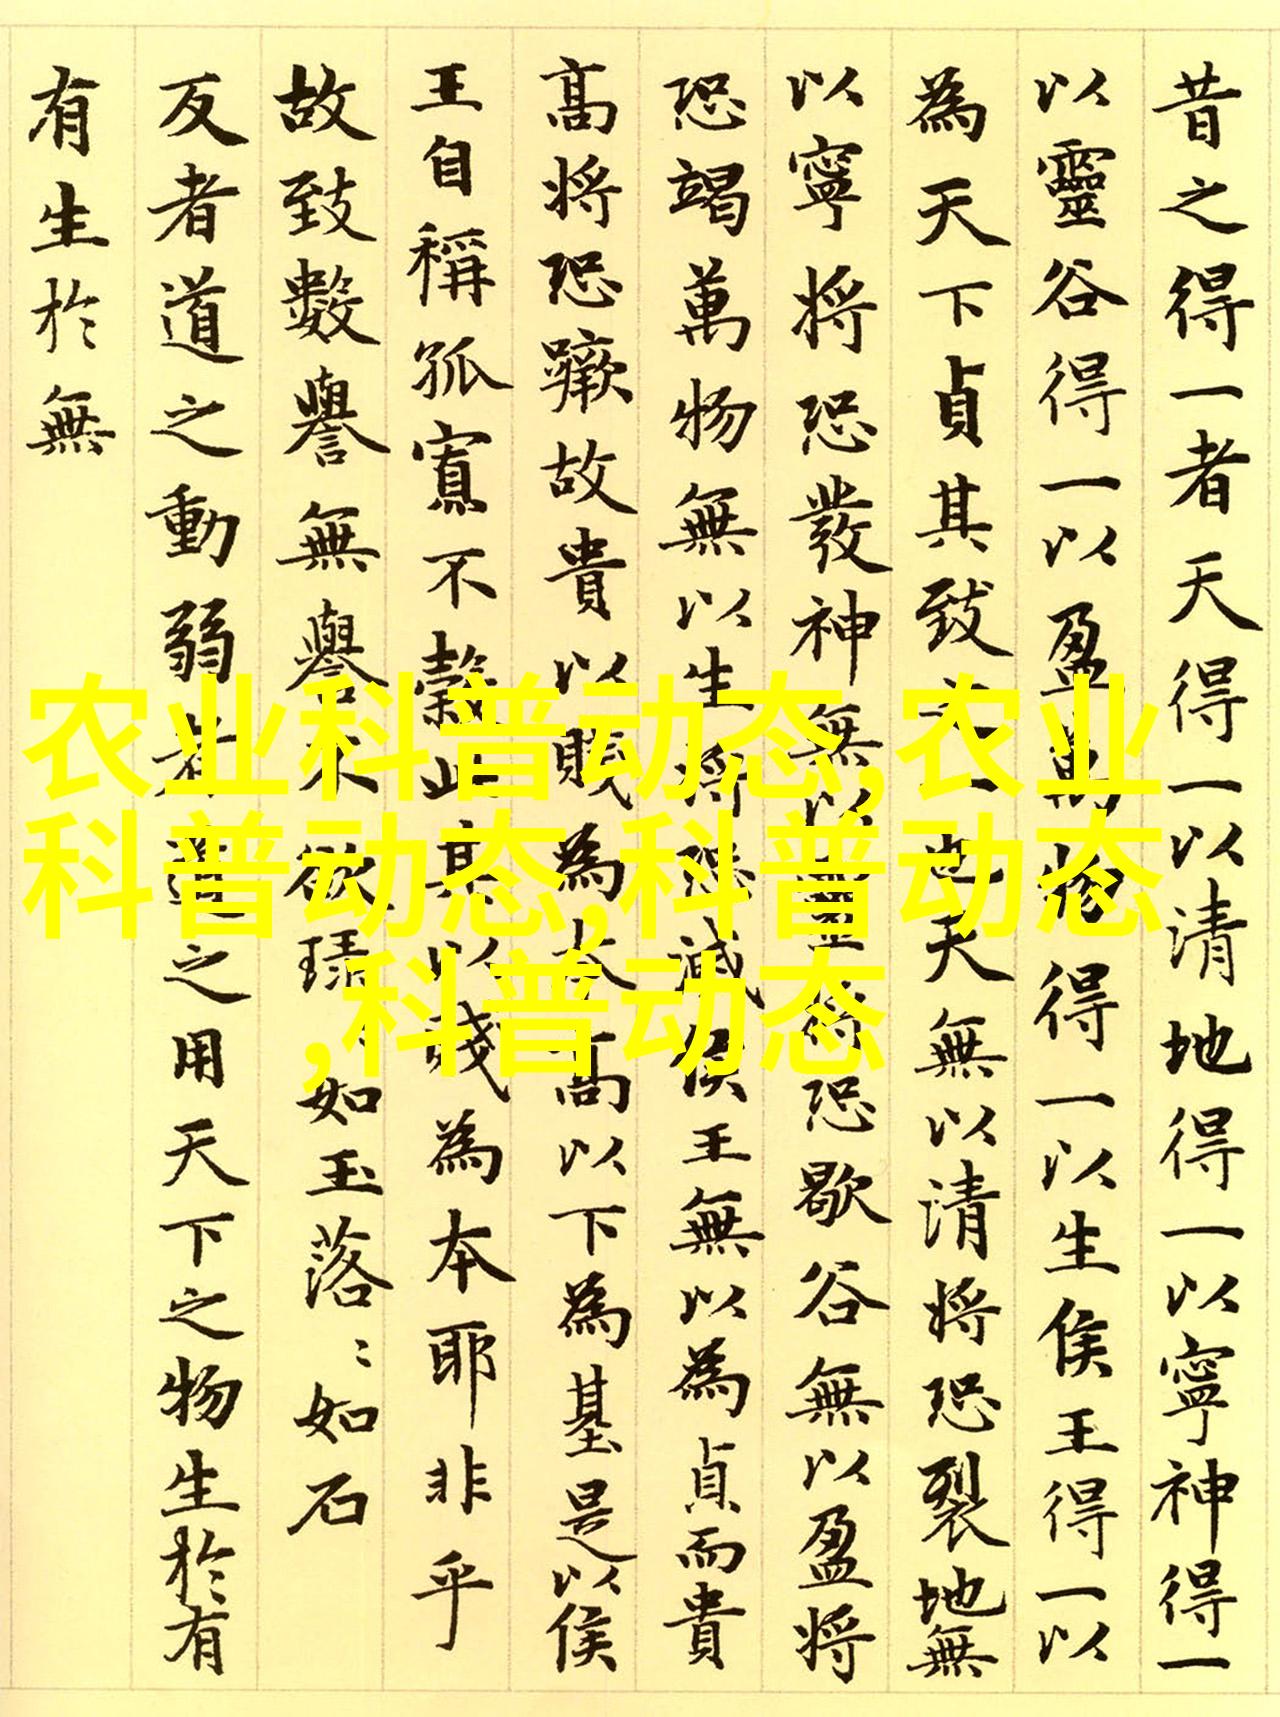 昔之得一者天得一以清地得一以寧神得一
以靈谷得一以盈萬物得一以生侯王得一以
為天下貞其致之一也天無以清將恐裂地無
以寧將恐發神無以靈將恐歇谷無以盈將
恐竭萬物無以生將恐滅侯王無以為貞而貴
高將恐蹶故貴以賤為本高以下為基是以侯
王自稱孤寡不穀此其以賤為本耶非乎
故致數譽無譽不欲琭〻如玉落〻如石
反者道之動弱者道之用天下之物生於有
有生於無
农业科普动态,农业
科普动态,科普动态
,科普动态